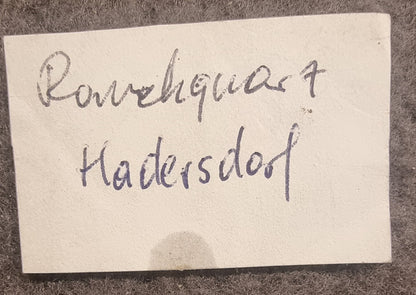 Rauchquarz
Hadersdorf